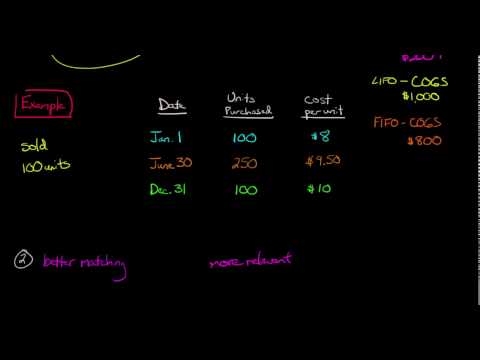 LIFO - COGS
$1,000
Example
Date
Units Purchased
Cost per unit
FIFO - COGS
$800
sold
100 units
Jan. 1 100 $8
June 30 250 $9.50
Dec. 31 100 $10
2 better matching more relevant